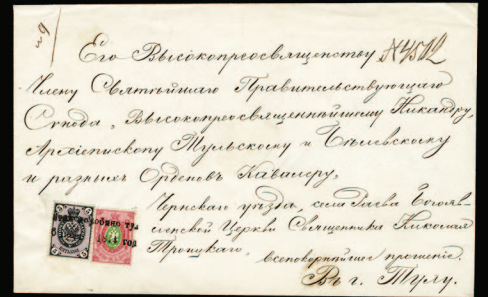 Его Высокопреосвященству
№ 4512
Члену Святѣйшаго Правительствующаго
Сѵнода, Высокопреосвященнѣйшему Никандру,
Архіепископу Тульскому и Бѣлевскому
и разныхъ Орденовъ Кавалеру,
Чернскаго уѣзда, села Гаева Богояв-
ленской Церкви Священника Николая
Троицкаго, всепокорнѣйшее прошеніе.
Въ г. Тулу.